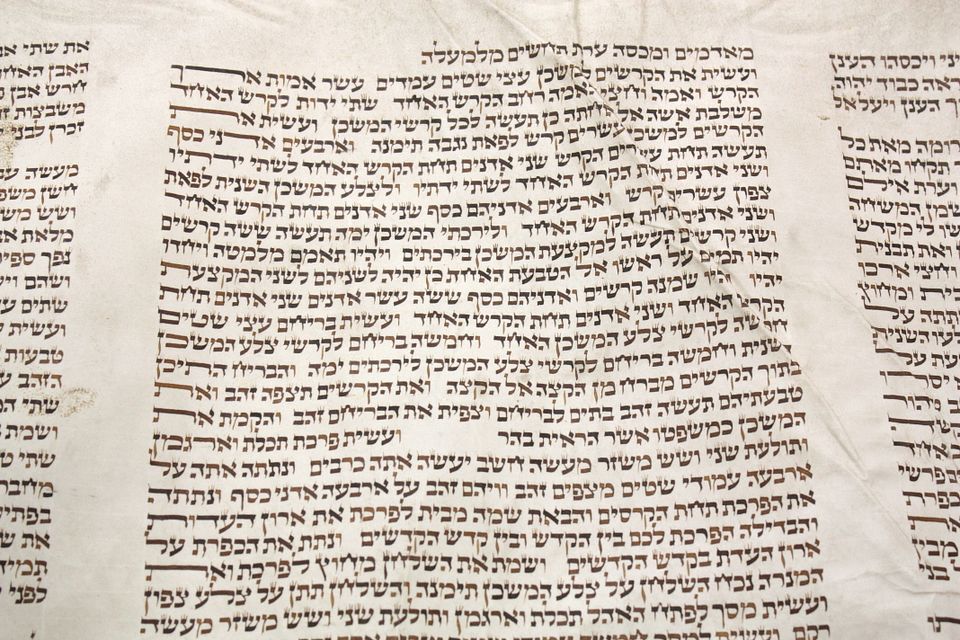 ויכסהו הענן
כבוד יהוה
הענן ויעל אל
מאת כל
תקחו מאתם
וערת אילם
המשחה
לי מקדש
ואת תבנית
וחצי ארכו
ומחוץ
מאדמים ומכסה ערת תחשים מלמעלה
ועשית את הקרשים למשכן עצי שטים עמדים עשר אמות ארך
הקרש ואמה וחצי האמה רחב הקרש האחד שתי ידות לקרש האחד
משלבת אשה אל אחתה כן תעשה לכל קרשי המשכן ועשית את
הקרשים למשכן עשרים קרש לפאת נגבה תימנה וארבעים אדני כסף
תעשה תחת עשרים הקרש שני אדנים תחת הקרש האחד לשתי ידתיו
ושני אדנים תחת הקרש האחד לשתי ידתיו ולצלע המשכן השנית לפאת
צפון עשרים קרש וארבעים אדניהם כסף שני אדנים תחת הקרש האחד
ושני אדנים תחת הקרש האחד ולירכתי המשכן ימה תעשה ששה קרשים
ושני קרשים תעשה למקצעת המשכן בירכתים ויהיו תאמם מלמטה ויחדו
יהיו תמים על ראשו אל הטבעת האחת כן יהיה לשניהם לשני המקצעת
יהיו והיו שמנה קרשים ואדניהם כסף ששה עשר אדנים שני אדנים תחת
הקרש האחד ושני אדנים תחת הקרש האחד ועשית בריחם עצי שטים
חמשה לקרשי צלע המשכן האחד וחמשה בריחם לקרשי צלע המשכן
השנית וחמשה בריחם לקרשי צלע המשכן לירכתים ימה והבריח התיכן
בתוך הקרשים מברח מן הקצה אל הקצה ואת הקרשים תצפה זהב ואת
טבעתיהם תעשה זהב בתים לבריחם וצפית את הבריחם זהב והקמת את
המשכן כמשפטו אשר הראית בהר ועשית פרכת תכלת וארגמן
ותולעת שני ושש משזר מעשה חשב יעשה אתה כרבים ונתתה אתה על
ארבעה עמודי שטים מצפים זהב וויהם זהב על ארבעה אדני כסף ונתתה
את הפרכת תחת הקרסים והבאת שמה מבית לפרכת את ארון העדות
והבדילה הפרכת לכם בין הקדש ובין קדש הקדשים ונתת את הכפרת על
ארון העדת בקדש הקדשים ושמת את השלחן מחוץ לפרכת ואת
המנרה נכח השלחן על צלע המשכן תימנה והשלחן תתן על צלע צפון
ועשית מסך לפתח האהל תכלת וארגמן ותולעת שני ושש משזר מעשה
את שתי
האבן האחת
חרש אבן
משבצות
זכרן לבני
מעשה
חשן משפט
ושש
מלאת
נפך ספיר
ושהם
שתים
ועשית
טבעות
הזהב
שתי
ושמת
שתי
בפתיל
את
תמיד
לפני